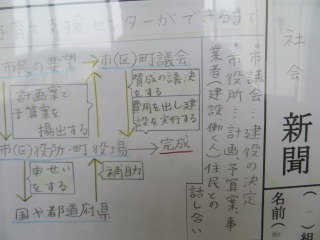 子育て支援センターができるまで
市民の要望→市(区)町議会
計画案と
予算案を
提出する
賛成の議決
をする
費用を出し建
設を実行する
市(区)役所・町役場→完成
申せい
をする
補助
国や都道府県
・市議会…建設の決定
・市役所…計画・予算案、事
業者(建設働く人)住民との
話し合い
社会
新聞
( )組
名前(